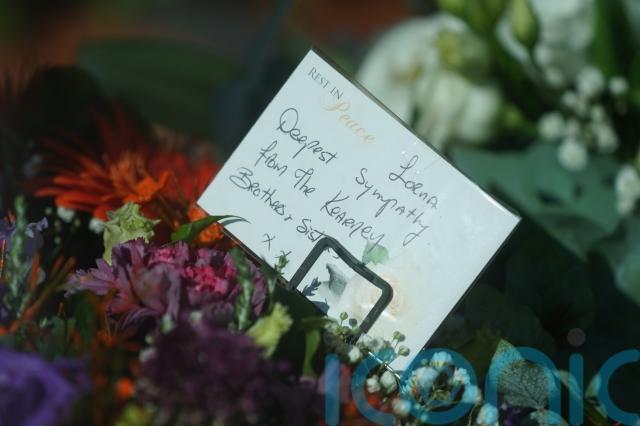 REST IN
Peace
Lorna.
Deepest Sympathy
from The Kearney
Brothers + Sist
x x
iconic